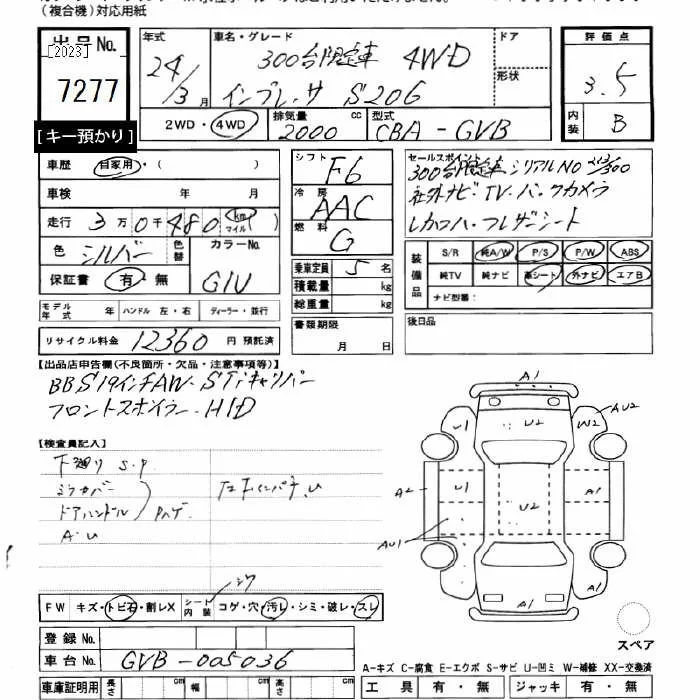 (複合機)対応用紙
出品No.
[2023]
7277
[キー預かり]
年式
24/3月
車名・グレード
300台限定車 4WD
インプレッサ S206
ドア
形状
評価点
3.5
内装
B
2WD・4WD
排気量
2000 cc
型式
CBA-GVB
車歴 自家用・( )
車検 年 月
走行 3万0千480 km マイル
色 シルバー 色替
カラーNo.
G1U
保証書 有・無
シフト
F6
冷房
AAC
燃料
G
乗車定員 5 名
積載量 kg
総重量 kg
セールスポイント
300台限定車 シリアルNo /300
社外ナビ・TV・バックカメラ
レカロハーフレザーシート
装備品
S/R 純A/W P/S P/W ABS
純TV 純ナビ 革シート 外ナビ エアB
ナビ型番:
モデル年式 年 ハンドル 左・右 ディーラー・並行
リサイクル料金 12360 円 預託済
書類期限
月 日
後日品
【出品店申告欄(不良箇所・欠品・注意事項等)】
BBS19インチAW・STiキャリパー
フロントスポイラー・HID
【検査員記入】
下廻り S.P
ミラカバー
ドアハンドル Pハゲ
A・U
A1
U1
U2
W2
AU2
A2
U1
U2
A1
AU1
A2
A1
FW キズ・トビ石・割レX シート内装 コゲ・穴・汚レ・シミ・破レ・スレ
シワ
登録No.
車台No. GVB-005036
スペア
A-キズ C-腐食 E-エクボ S-サビ U-凹ミ W-補修 XX-交換済
車庫証明用 長さ cm 幅 cm 高さ cm
工具 有・無 ジャッキ 有・無